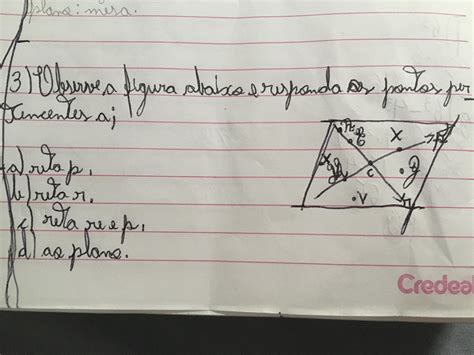 plano: mesa.
3) Observe a figura abaixo e responda os pontos per
tencentes a;
a) reta p,
b) reta r,
c) reta r e p,
d) ao plano.
X
X
C
V
Credeal